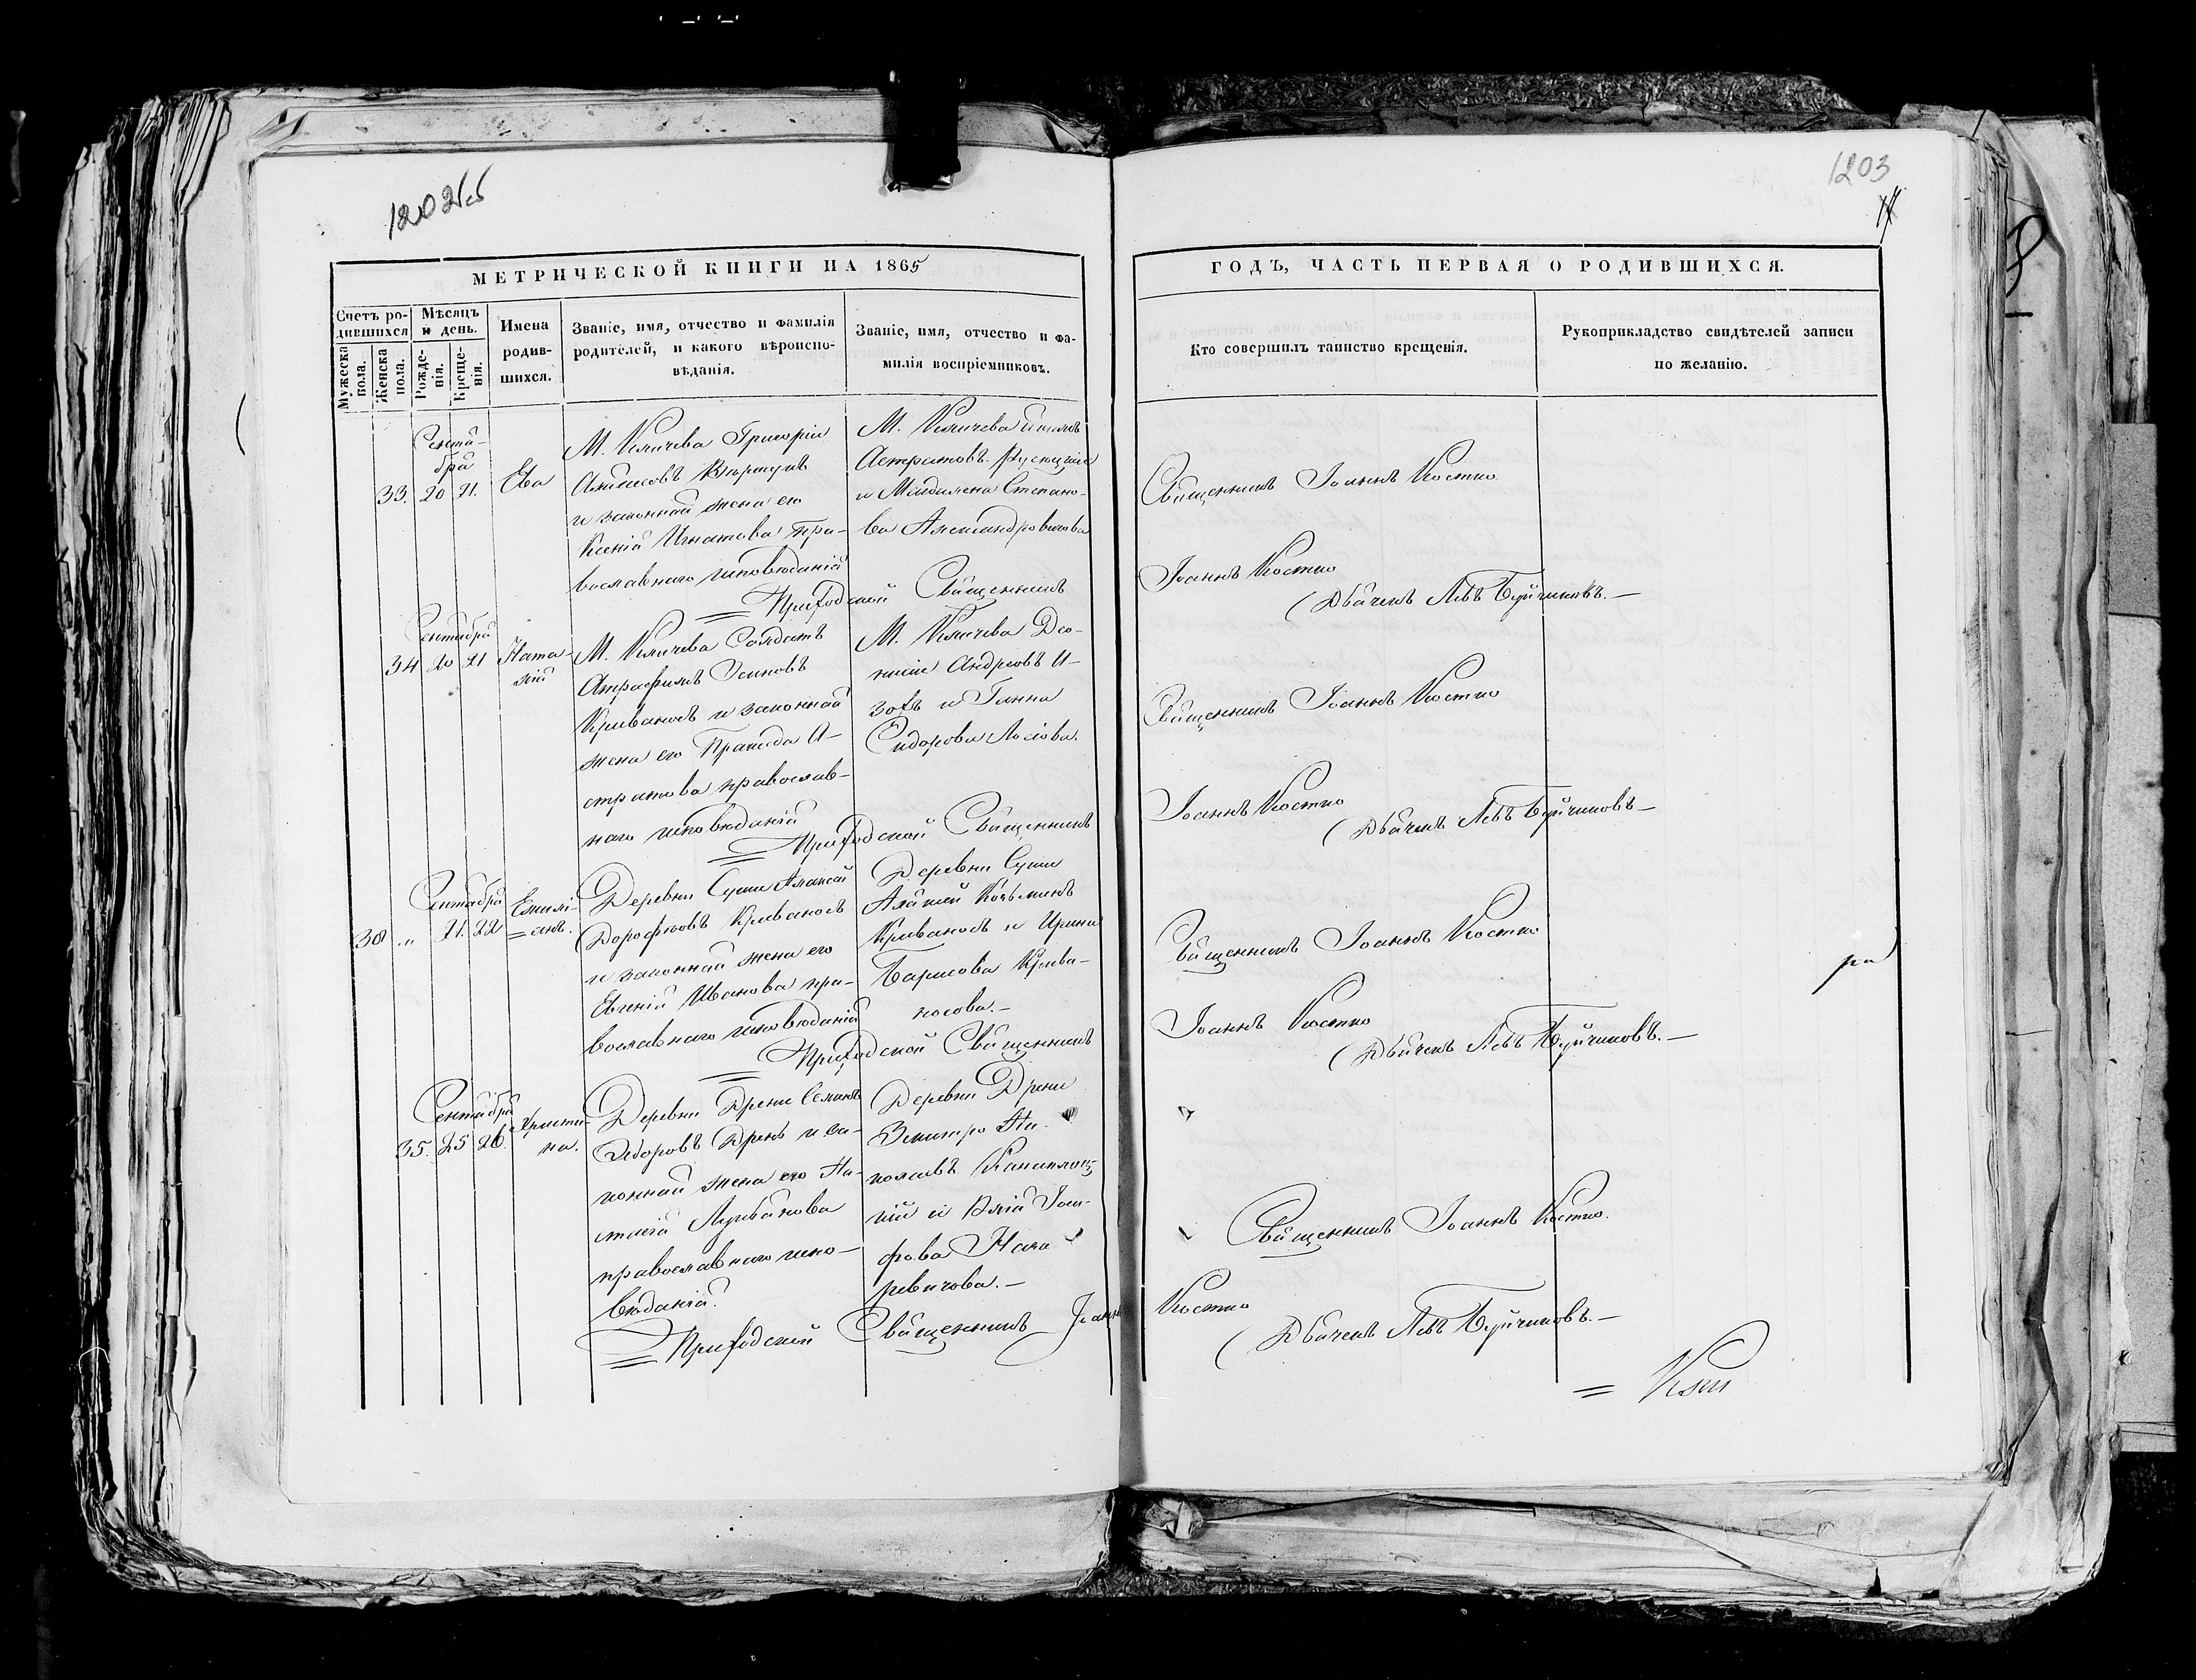 1202об
1203
МЕТРИЧЕСКОЙ КНИГИ НА 1865
ГОДЪ, ЧАСТЬ ПЕРВАЯ О РОДИВШИХСЯ.
Счетъ родившихся
Мужеска пола.
Женска пола.
Мѣсяцъ и день.
Рожденія.
Крещенія.
Имена родившихся.
Званіе, имя, отчество и фамилія
родителей, и какого вѣроиспо-
вѣданія.
Званіе, имя, отчество и фа-
милія воспріемниковъ.
Кто совершилъ таинство крещенія.
Рукоприкладство свидѣтелей записи
по желанію.
Сентя-
бря
33. 20 21. Ева
М. Кличева Григорій
и законная жена его
Ксенія Игнатова пра-
вославнаго исповѣданія
М. Кличева
и Магдалена Степано-
ва Александровичова
Священникъ Іоаннъ Костко
= Приходской Священникъ
Іоаннъ Костко
Дьячекъ Левъ Буйчиковъ. —
Сентября
34 20 21 Ната-
лія
М. Кличева Солдатъ
Осиповъ
Кривонось и законная
жена его А-
стратова православ-
наго исповѣданія
М. Кличева Део-
нисій Андреевъ И-
зохъ и Ганна
Сидорова
Священникъ Іоаннъ Костко
= Приходской Священникъ
Іоаннъ Костко
Дьячекъ Левъ Буйчиковъ —
Сентября
38 „ 21. 22 Емилі-
= анъ.
Деревни Суши
Дорофеовъ Кривонось
и законная жена его
Евгенія Иванова пра-
вославнаго исповѣданія
Деревни Суши
Козьминъ
Кривонось и Ирина
Барисова Криво-
носова. —
Священникъ Іоаннъ Костко
= Приходской Священникъ
Іоаннъ Костко
Дьячекъ Левъ Буйчиковъ. —
Сентября
35. 25 26. Христи-
на.
Деревни Дрени Семенъ
Ѳедоровъ Дрень и за-
конная жена его На-
стасія
православнаго испо-
вѣданія.
Деревни Дрени
Змитро
и Юлія Іоси-
фова Мака
ревичова. —
Священникъ Іоаннъ Костко.
= Приходской Священникъ Іоаннъ
Костко
Дьячекъ Левъ Буйчиковъ. —
ра